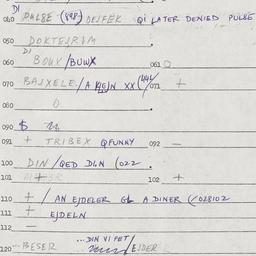 DI
040 PULSE (898) DEJFEK QI LATER DENIED PULSE
050 DOKTEJRIM
DI
060 BOUX/BUWX 061
070 BAJXELE/A 071 +
080 0
090 $
091 + TRIBEX QFUNKY 092 -
100 DIN/QED DIN (022
101 102 +
110 +/AN EJDELER GL A DINER (028102
111 + EJDELN
112 -
120 ...BESER ...DIN VI FET/EJDER